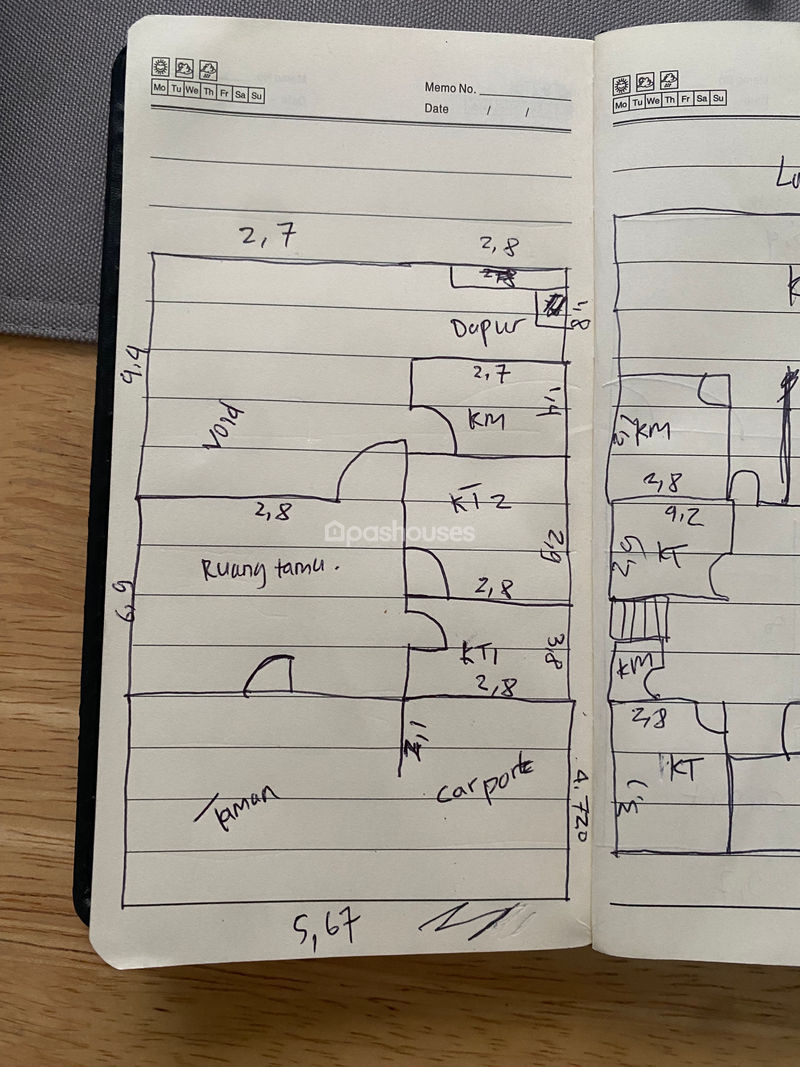 Mo Tu We Th Fr Sa Su
Memo No.
Date / /
2,7
2,8
1,8
Dapur
2,7
1,4
KM
9,4
Void
KT 2
2,8
2,9
Ruang tamu.
2,8
6,9
3,8
KT1
2,8
1,2
Taman
Carport
4,720
5,67
pashouses
Mo Tu We Th Fr Sa Su
KM
2,8
9,2
KT
KM
2,8
KT